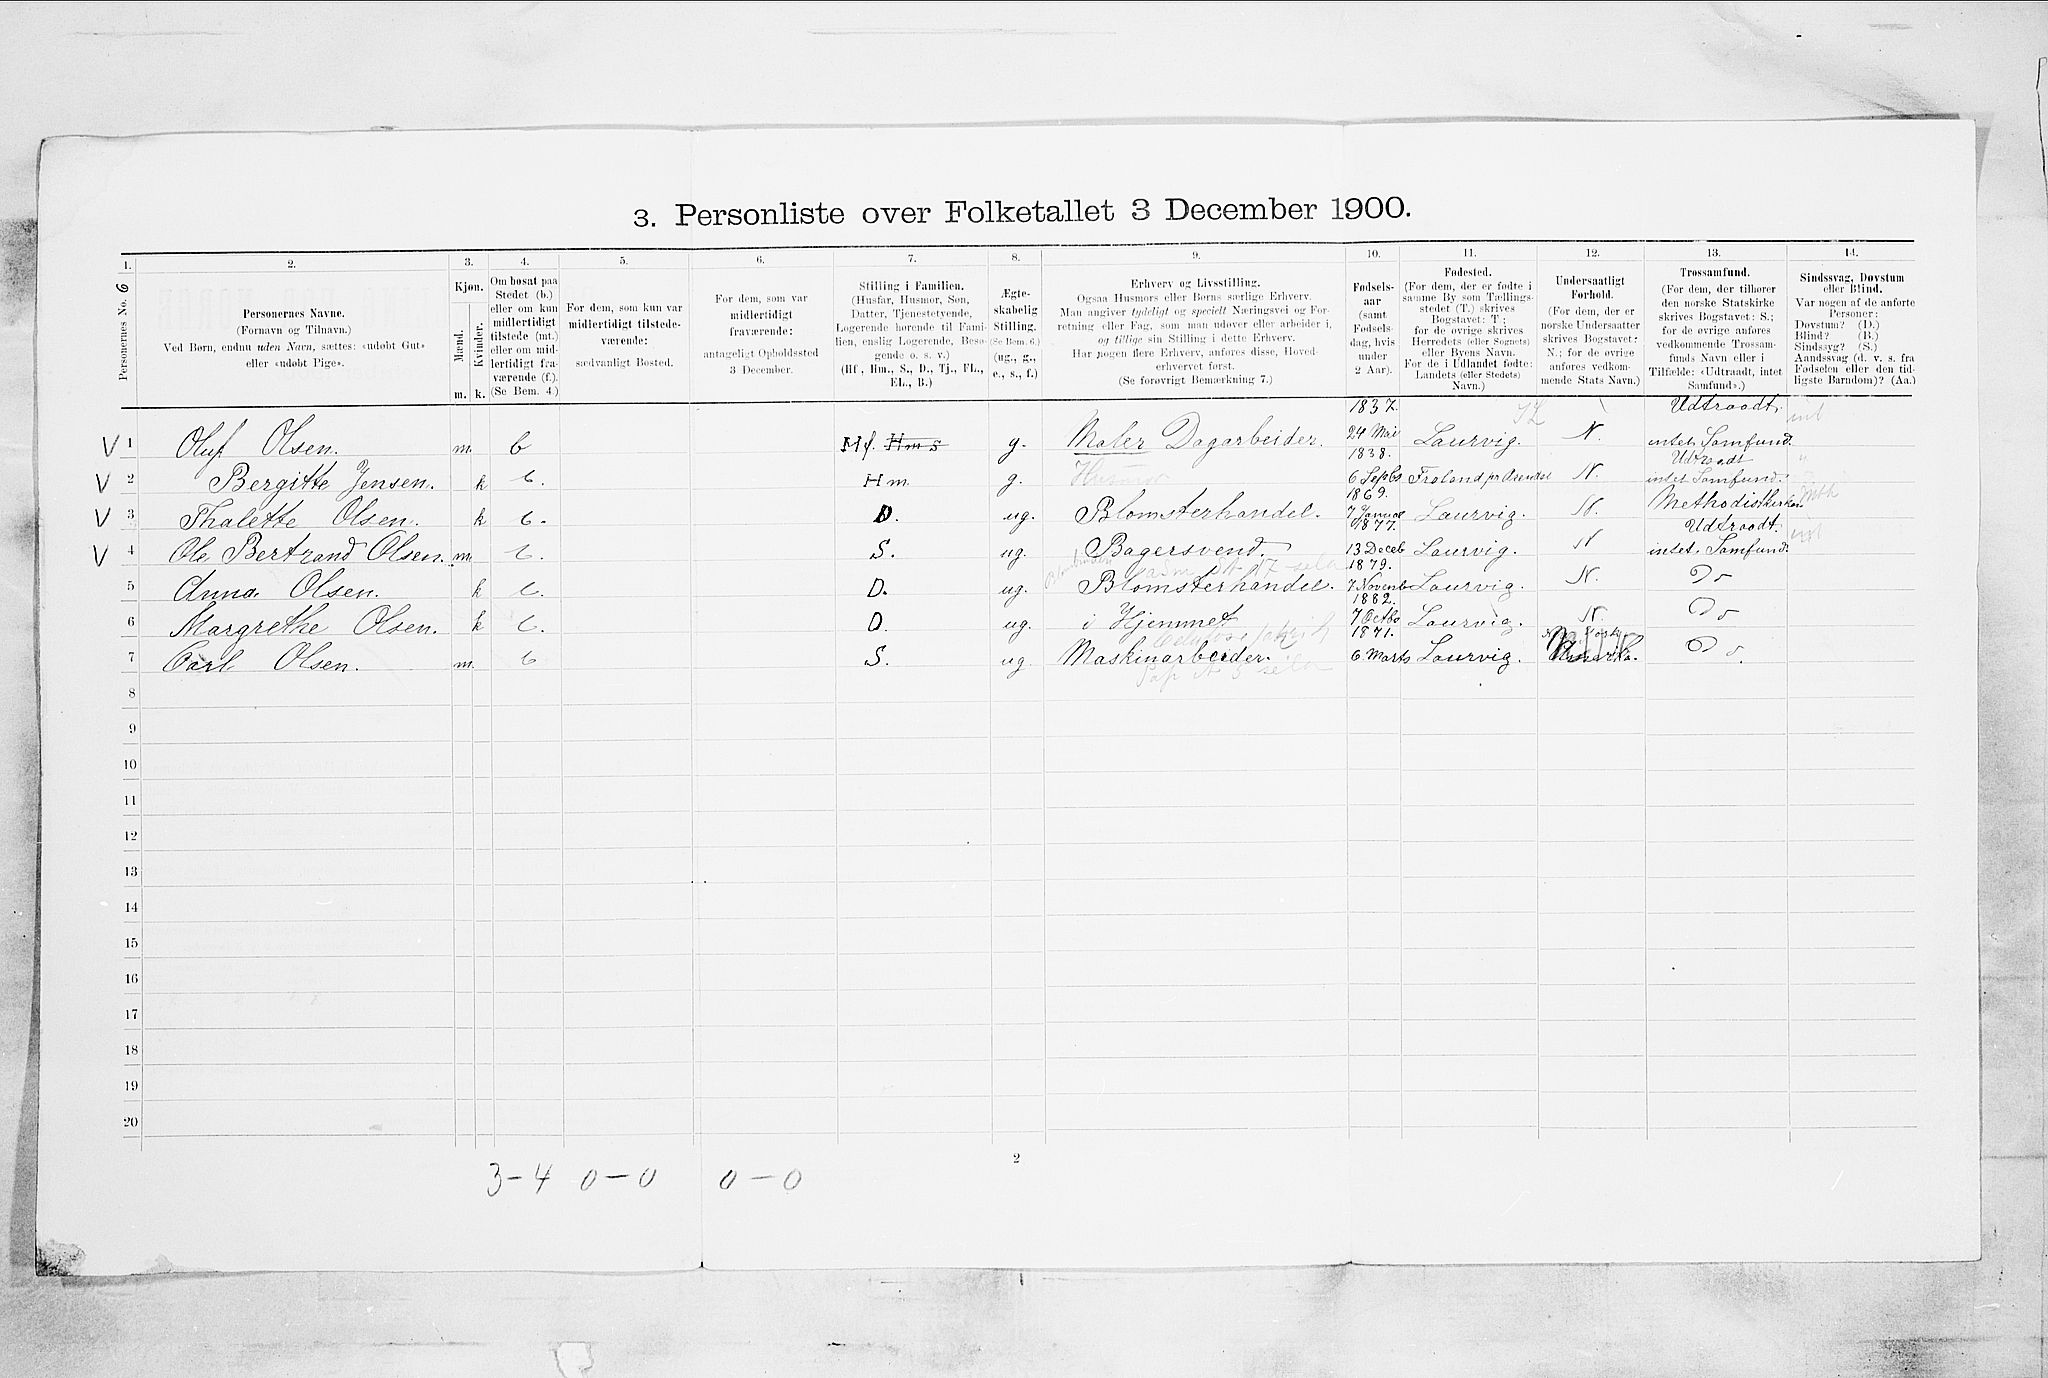 3. Personliste over Folketallet 3 December 1900.
1.
Personernes No.
6
2.
Personernes Navne.
(Fornavn og Tilnavn.)
Ved Børn, endnu uden Navn, sættes: «udøbt Gut»
eller «udøbt Pige».
3.
Kjøn.
Mænd.
Kvinder.
m. k.
4.
Om bosat paa
Stedet (b.)
eller om kun
midlertidigt
tilstede (mt.)
eller om mid-
lertidigt fra-
værende (f.).
(Se Bem. 4.)
5.
For dem, som kun var
midlertidigt tilstede-
værende:
sædvanligt Bosted.
6.
For dem, som var
midlertidigt
fraværende:
antageligt Opholdssted
3 December.
7.
Stilling i Familien.
(Husfar, Husmor, Søn,
Datter, Tjenestetyende,
Logerende hørende til Fami-
lien, enslig Logerende, Besø-
gende o. s. v.)
(Hf, Hm., S., D., Tj., FL.,
EL., B.)
8.
Ægte-
skabelig
Stilling.
(Se Bem. 6.)
(ug., g.,
e., s., f.)
9.
Erhverv og Livsstilling.
Ogsaa Husmors eller Børns særlige Erhverv.
Man angiver tydeligt og specielt Næringsvei og For-
retning eller Fag, som man udøver eller arbeider i,
og tillige sin Stilling i dette Erhverv.
Har nogen flere Erhverv, anføres disse, Hoved-
erhvervet først.
(Se forøvrigt Bemærkning 7.)
10.
Fødsels-
aar
(samt
Fødsels-
dag, hvis
under
2 Aar).
11.
Fødested.
(For dem, der er fødte i
samme By som Tællings-
stedet (T.) skrives
Bogstavet: T;
for de øvrige skrives
Herredets (eller Sognets)
eller Byens Navn.
For de i Udlandet fødte:
Landets (eller Stedets)
Navn.)
12.
Undersaatligt
Forhold.
(For dem, der er
norske Undersaatter
skrives Bogstavet:
N.; for de øvrige
anføres vedkom-
mende Stats Navn.)
13.
Trossamfund.
(For dem, der tilhører
den norske Statskirke
skrives Bogstavet: S.;
for de øvrige anføres
vedkommende Trossam-
funds Navn eller i
Tilfælde: «Udtraadt, intet
Samfund».)
14.
Sindssvag, Døvstum
eller Blind.
Var nogen af de anførte
Personer:
Døvstum? (D.)
Blind? (B.)
Sindssyg? (S.)
Aandssvag (d. v. s. fra
Fødselen eller den tid-
ligste Barndom)? (Aa.)
V 1 Oluf Olsen. m. b Hf. Hms g. Maler Dagarbeider. 1837. 24 Mai Laurvig. N. Udtraadt. intet Samfund int
V 2 Bergitte Jensen. k b. Hm g. Husmor 1838. 6 Septb Froland pr Arendal N. Udtraadt intet Samfund. "
V 3 Thalette Olsen. k b. D. ug. Blomsterhandel. 1869. 7 Januar Laurvig. N. Methodistkirken Mth
V 4 Ole Bertrand Olsen. m. b. S. ug. Bagersvend. 1877. 13 Deceb Laurvig. N Udtraadt. intet Samfund. int
5 Anna Olsen. k b. D. ug. Blomsterhandel. 1879. 7 Novemb Laurvig. N. Do
6 Margrethe Olsen. k b. D. ug. i Hjemmet 1882. 7 Octbo Laurvig. N. Do
7 Carl Olsen. m. b S. ug. Maskinarbeider. 1871. 6. Marts Laurvig. Do.
8
9
10
11
12
13
14
15
16
17
18
19
20
2
3-4 0-0 0-0